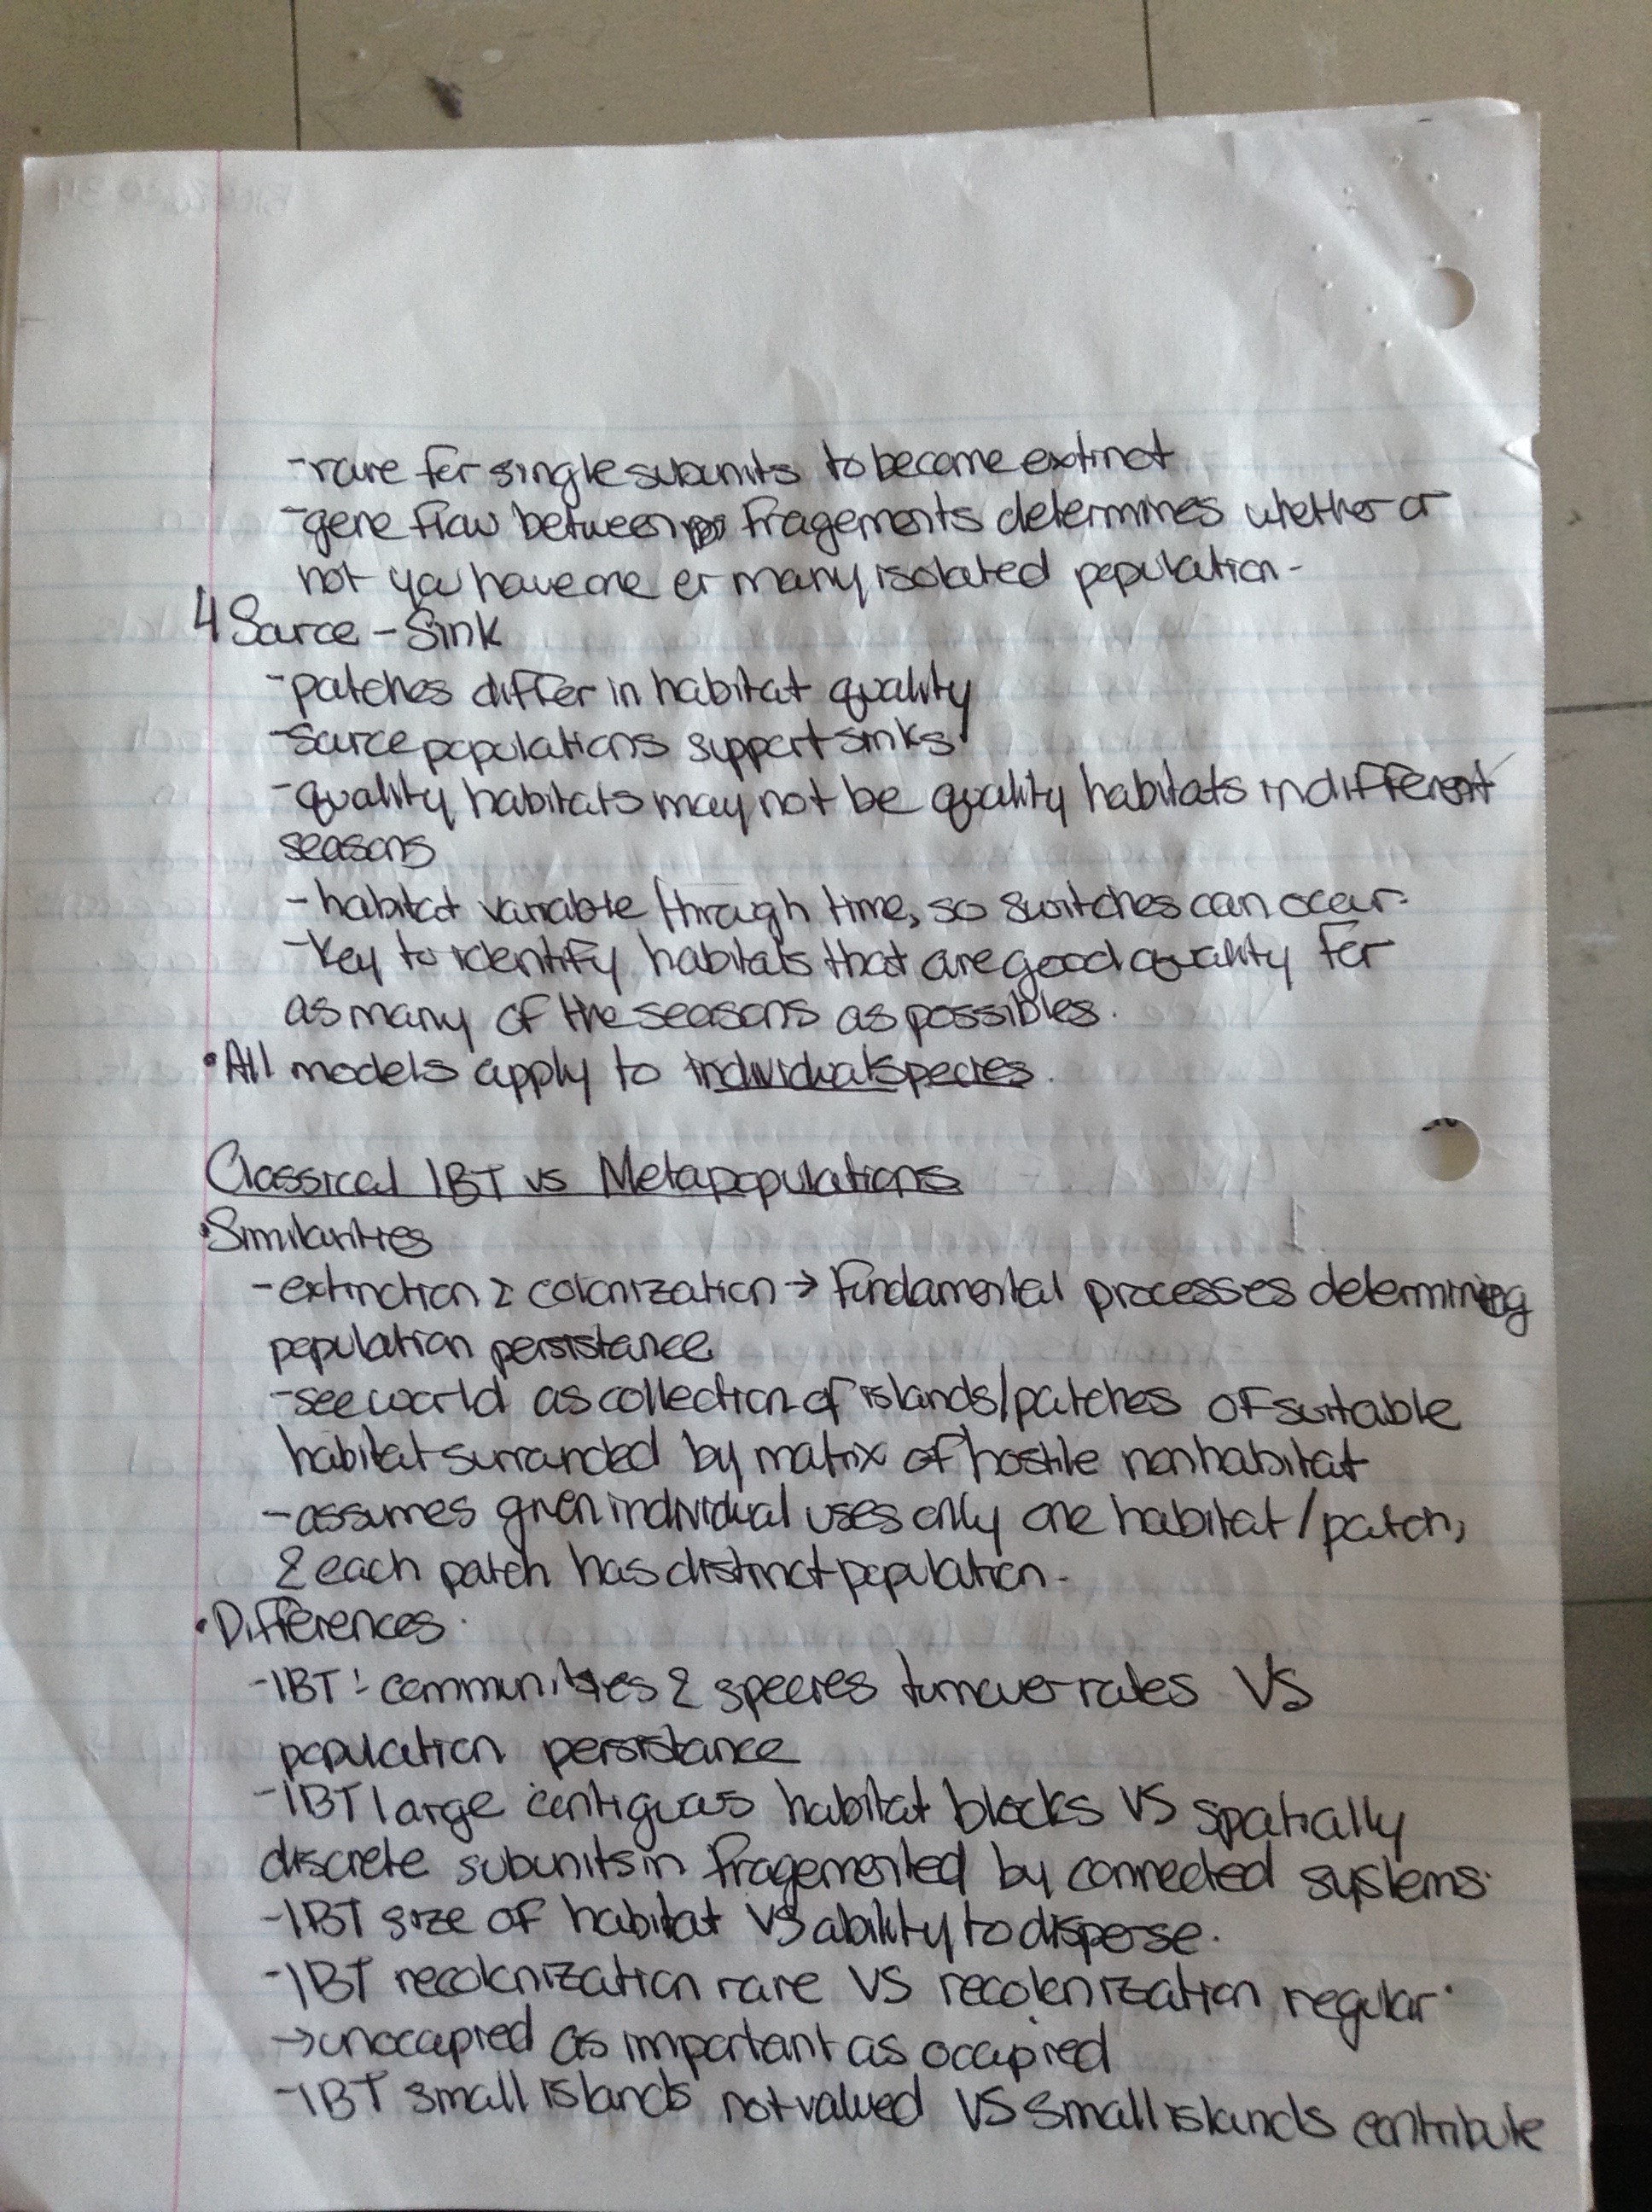 - rare for single subunits to become extinct
- gene flow between fragements determines whether or
not you have one or many isolated population.
4 Source - Sink
- patches differ in habitat quality
- Source populations support sinks
- quality habitats may not be quality habitats in different
seasons
- habitat variable through time, so switches can occur.
- Key to identify habitats that are good quality for
as many of the seasons as possibles.
• All models apply to individual species.
Classical IBT vs Metapopulations
• Similarities
- extinction & colonization → fundamental processes determining
population persistance
- see world as collection of islands/patches of suitable
habitat surrounded by matrix of hostile nonhabitat
- assumes given individual uses only one habitat/patch,
& each patch has distinct population.
• Differences.
- IBT: communities & species turnover rates VS
population persistance
- IBT large contiguous habitat blocks VS spatially
discrete subunits in fragemented by connected systems.
- IBT size of habitat VS ability to disperse.
- IBT recolonization rare VS recolonization regular.
→ unoccupied as important as occupied
- IBT small islands not valued VS small islands contribute